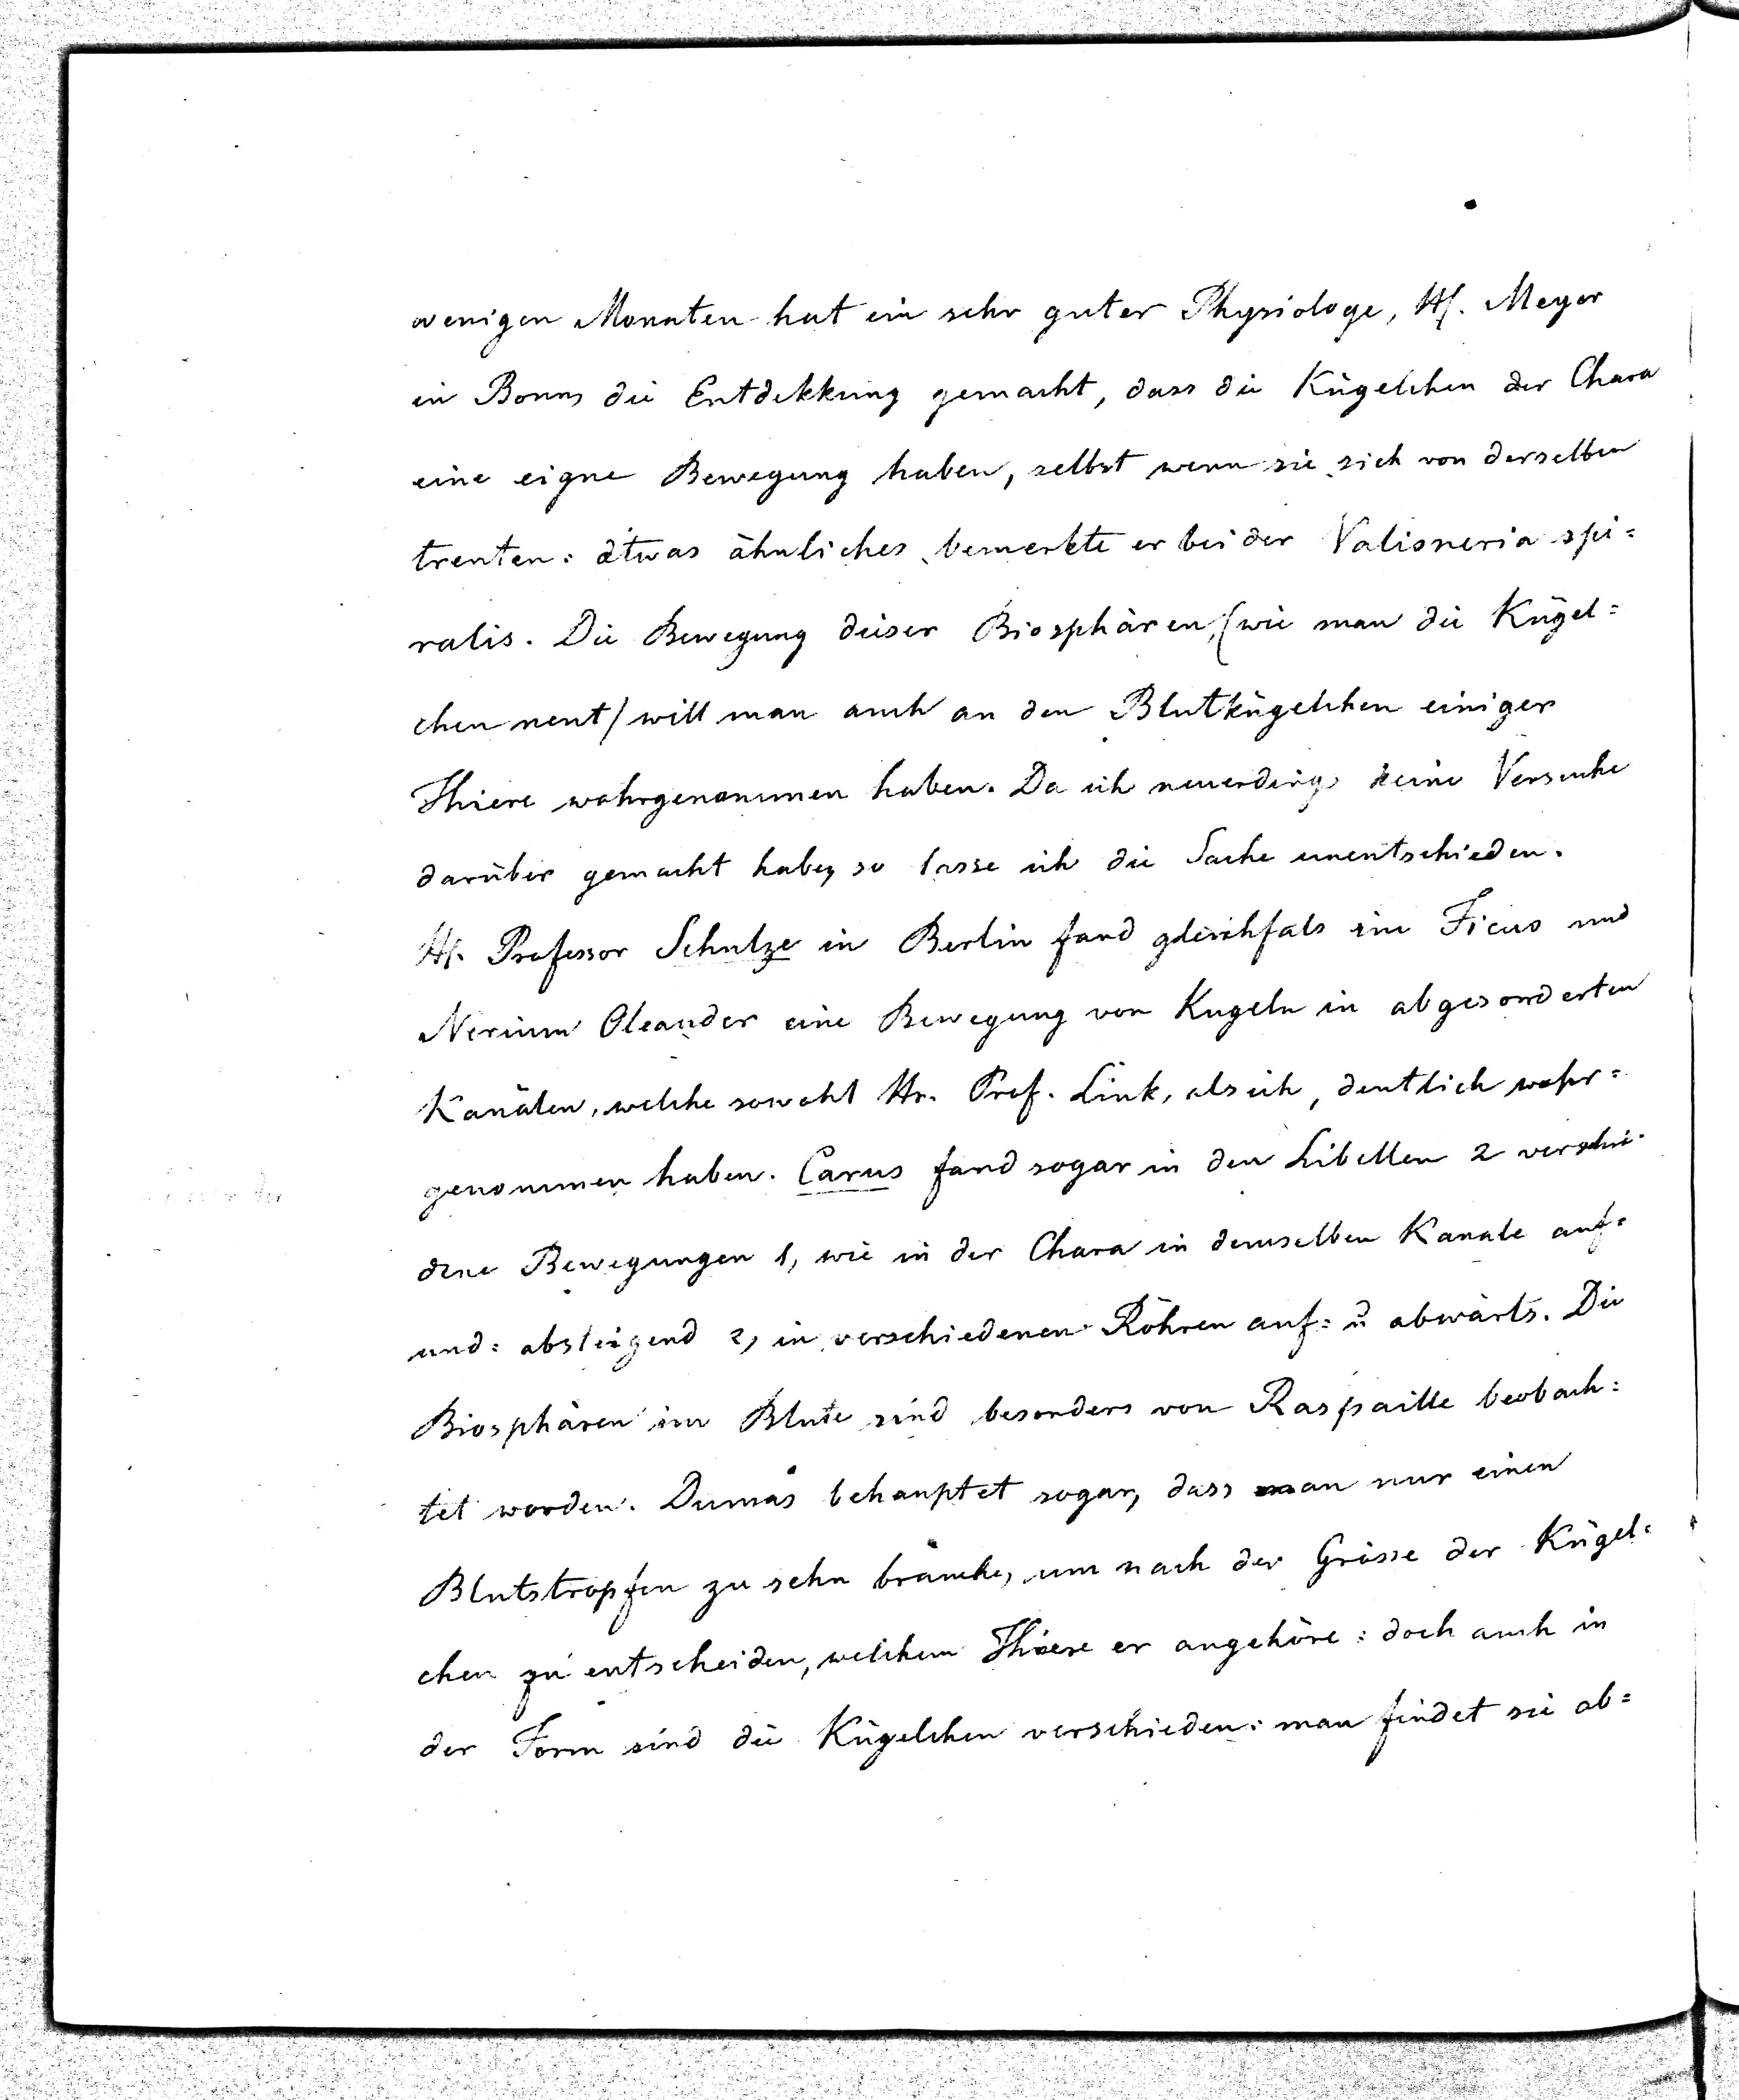 wenigen Monaten hat ein sehr guter Physiologe, Hr. Meyer
in Bonn, die Entdekkung gemacht, dass die Kügelchen der Chara
eine eigne Bewegung haben, selbst wenn sie sich von derselben
trenten: etwas ähnliches bemerkte er bei der Valisneria spi=
ralis. Die Bewegung dieser Biosphären, (wie man die Kügel=
chen nent) will man auch an den Blutkügelchen einiger
Thiere wahrgenommen haben. Da ich neuerdings keine Versuche
darüber gemacht habe, so lasse ich die Sache unentschieden.
Hr. Professor Schulze in Berlin fand gleichfals im Ficus und
Nerium Oleander eine Bewegung von Kugeln in abgesonderten
Kanälen, welche sowohl Hr. Prof. Link, als ich, deutlich wahr=
genommen haben. Carus fand sogar in den Libellen 2 verschie-
dene Bewegungen 1, wie in der Chara in demselben Kanale auf=
und= absteigend 2, in verschiedenen Röhren auf= u abwärts. Die
Biosphären im Blute sind besonders von Raspaille beobach=
tet worden. Dumas behauptet sogar, dass man nur einen
Blutstropfen zu sehn brauche, um nach der Grösse der Kügel=
chen zu entscheiden, welchem Thiere er angehöre: doch auch in
der Form sind die Kügelchen verschieden: man findet sie ab=